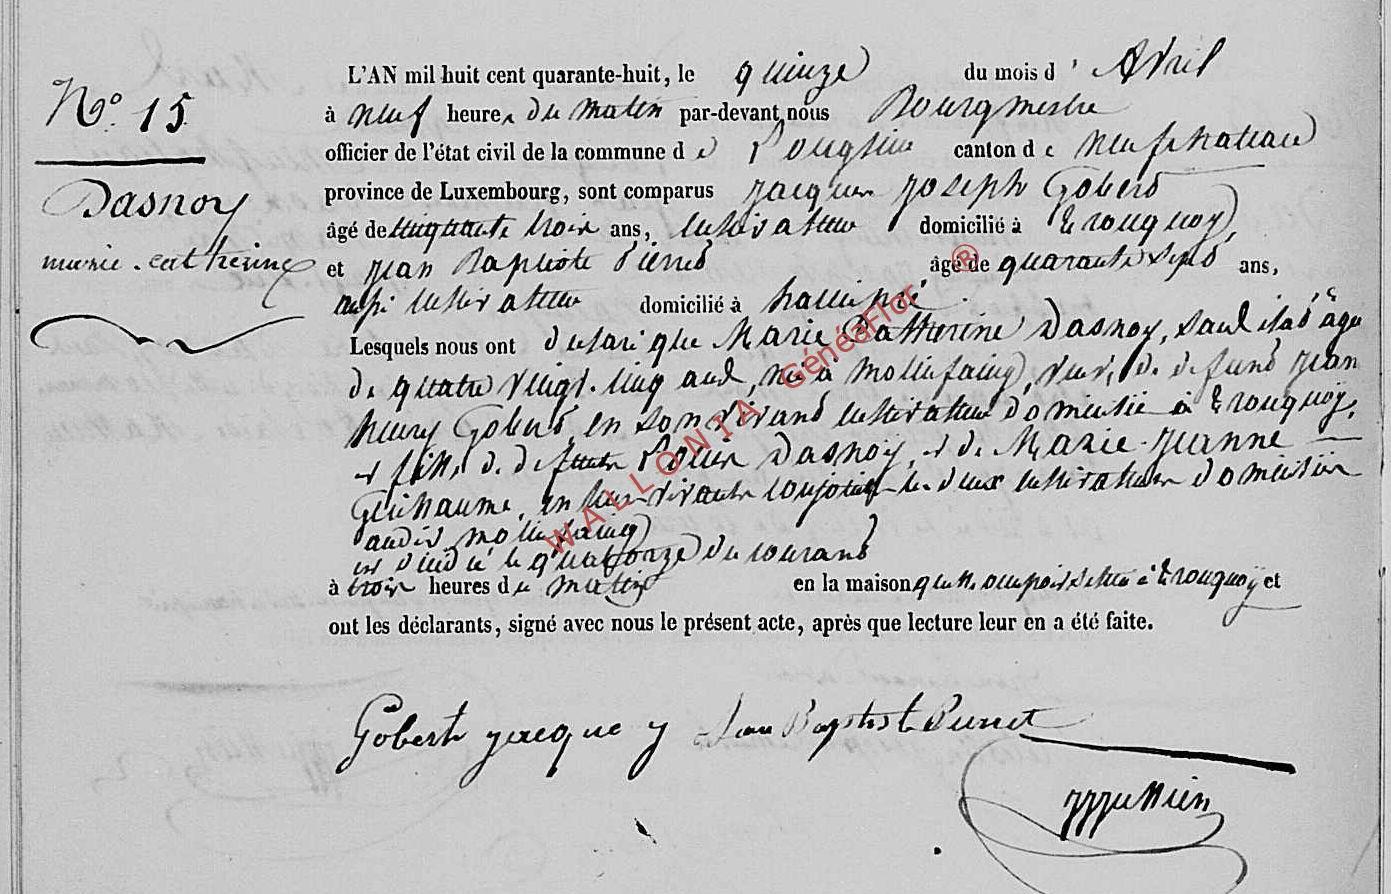 N° 15
Dasnoy
marie-catherine
L'AN mil huit cent quarante-huit, le quinze du mois d'Avril
à neuf heures du matin par-devant nous Bourgmestre
officier de l'état civil de la commune de canton de neufchateau
province de Luxembourg, sont comparus jacques joseph Gobert
âgé de cinquante trois ans, cultivateur domicilié à tronquoy
et jean Baptiste Pierret âgé de quarante sept ans,
aussi cultivateur domicilié à hamipré
Lesquels nous ont declaré que Marie Catherine Dasnoy, agée
de quatre vingt-cinq ans, née à molinfaing, veuve de defunt jean
henry Gobert, en son vivant cultivateur domicilié à tronquoy,
et fille de defunts Dasnoy, et de Marie-jeanne
Guillaume, en leur vivant conjoints cultivateurs domiciliés
audit molinfaing
est décédée le quatorze du courant
à trois heures du matin en la maison qu'elle occupoit à tronquoy et
ont les déclarants, signé avec nous le présent acte, après que lecture leur en a été faite.
Gobert jacque j Jean Baptiste Pierret
WALLONIA GénéaFlor ®